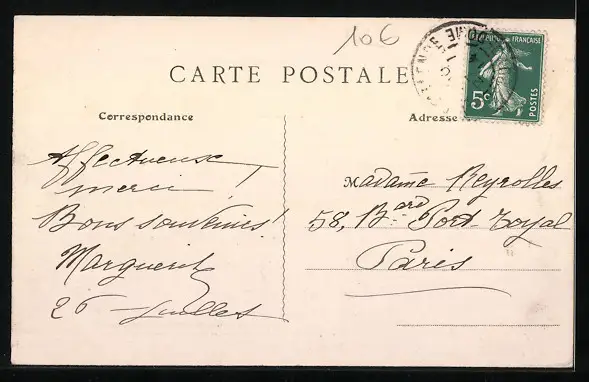 106
CARTE POSTALE
RÉPUBLIQUE FRANÇAISE
5c
POSTES
Correspondance
Adresse
Affectueux
merci !
Bons souvenirs !
Marguerite
26 Juillet
Madame Reyrolles
58, Bard Port-Royal
Paris